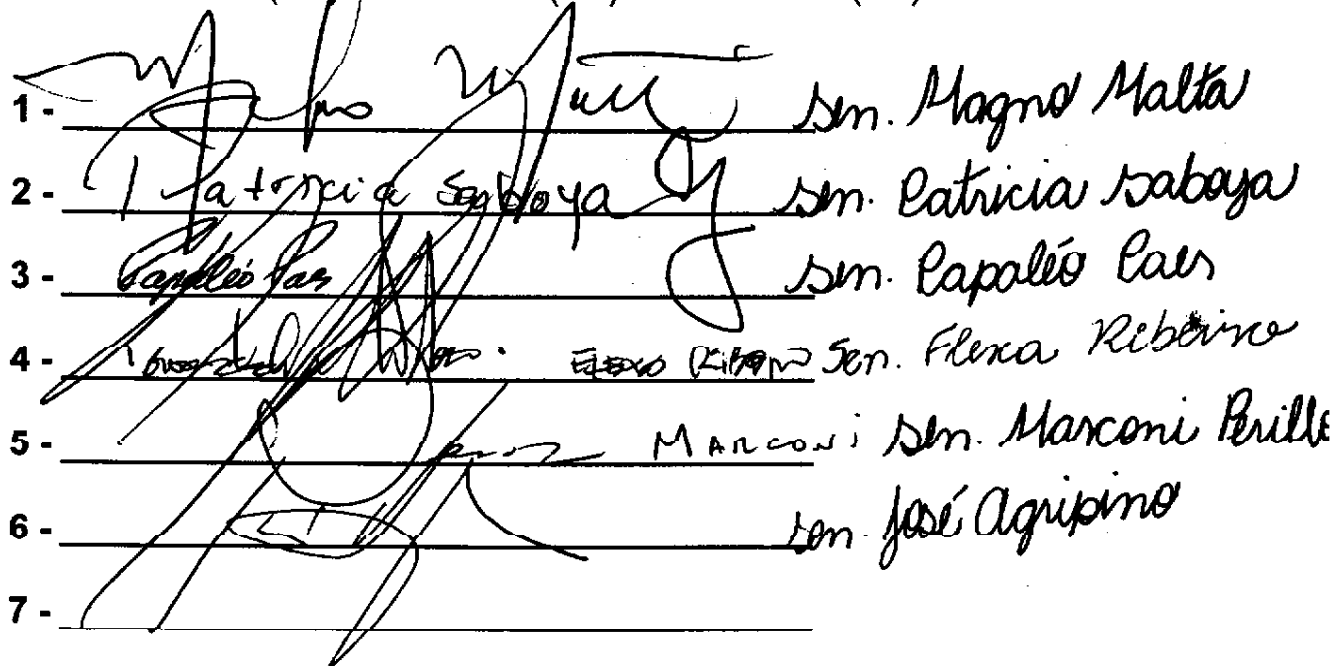 1 - Magno Malta sen. Magno Malta
2 - Patricia Saboya sen. Patricia Saboya
3 - Papaléo Paes sen. Papaléo Paes
4 - Flexa Ribeiro Sen. Flexa Ribeiro
5 - MARCONI sen. Marconi Perillo
6 - sen. José Agripino
7 -